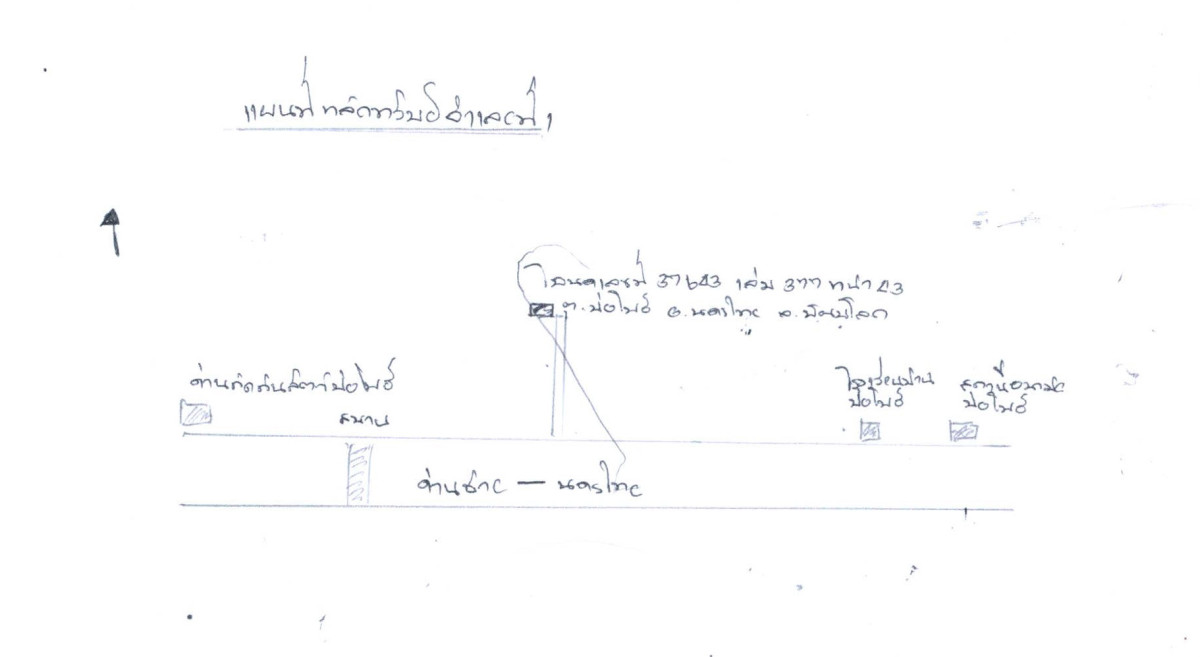 แผนที่ หลักทรัพย์ ลำเลขที่ 1
โฉนดเลขที่ 37643 เล่ม 377 หน้า 43
ต.บ่อโพธิ์ อ.นครไทย จ.พิษณุโลก
ด่านกักกันสัตว์บ่อโพธิ์
สะพาน
โรงเรียนบ้าน
บ่อโพธิ์
สถานีอนามัย
บ่อโพธิ์
ด่านซ้าย — นครไทย